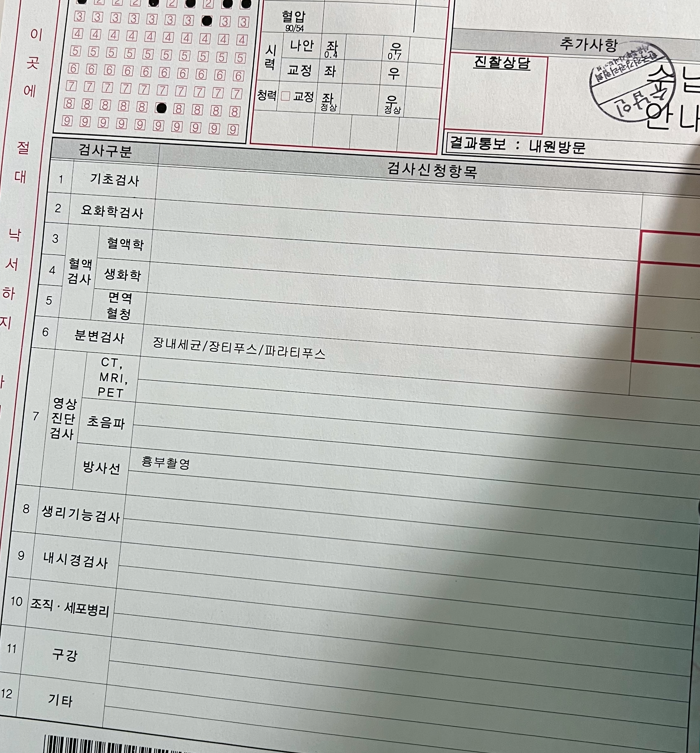 이 곳에 절대 낙서하지
3 3 3 3 3 3 3 3
4 4 4 4 4 4 4 4 4 4
5 5 5 5 5 5 5 5 5 5
6 6 6 6 6 6 6 6 6 6
7 7 7 7 7 7 7 7 7 7
8 8 8 8 8 8 8 8 8
9 9 9 9 9 9 9 9 9 9
혈압
90/54
시력 나안 좌 0.4 우 0.7
교정 좌 우
청력 교정 좌 정상 우 정상
추가사항
진찰상담
수납
안내
결과통보 : 내원방문
검사구분 검사신청항목
1 기초검사
2 요화학검사
혈액검사
3 혈액학
4 생화학
5 면역혈청
6 분변검사 장내세균/장티푸스/파라티푸스
7 영상진단검사
CT,
MRI,
PET
초음파
방사선 흉부촬영
8 생리기능검사
9 내시경검사
10 조직·세포병리
11 구강
12 기타